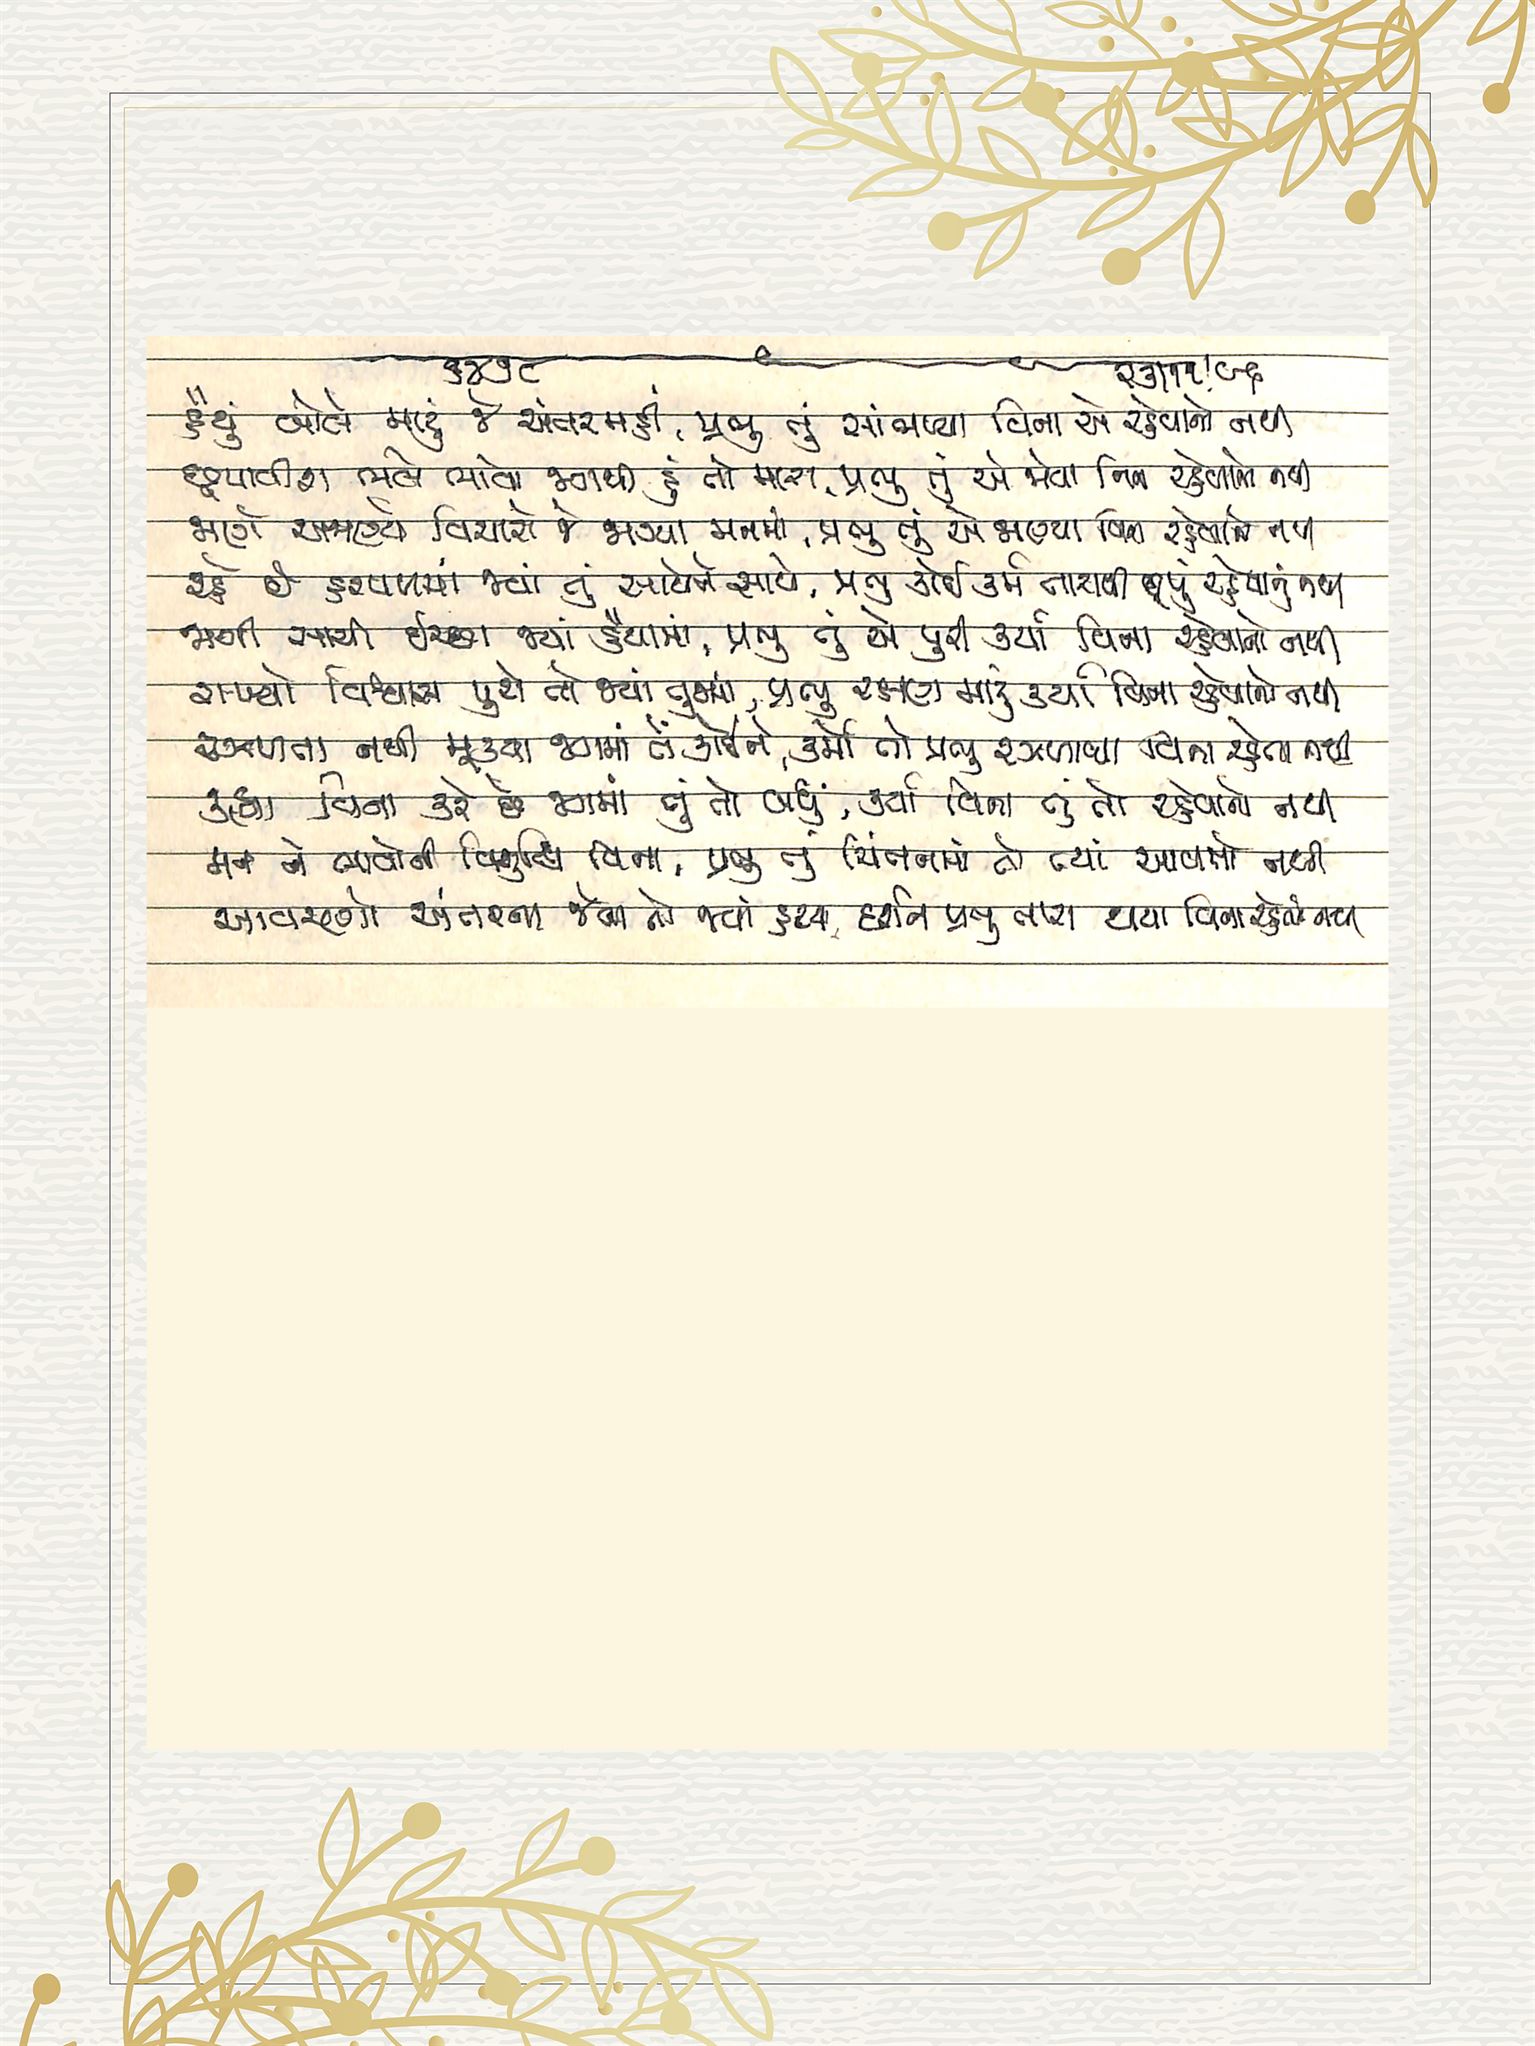 ૬૪૭૯ ૨૩/૧૧/૯૬
હૈયું બોલે મારું જે અંતરમહીં, પ્રભુ તું સાંભળ્યા વિના એ રહેવાનો નથી
છૂપાવીશ ભલે ભાવો જગથી હું તો મારા, પ્રભુ તું એ જોયા વિના રહેવાનો નથી
જાણે અજાણ્યે વિચારો જે જાગ્યા મનમાં, પ્રભુ તું એ જાણ્યા વિના રહેવાનો નથી
રહે છે હરપળમાં જ્યાં તું સાથે ને સાથે, પ્રભુ કોઈ કર્મ તારાથી છૂપું રહેવાનું નથી
જાગી સાચી ઈચ્છા જ્યાં હૈયામાં, પ્રભુ તું એ પુરી કર્યા વિના રહેવાનો નથી
રાખ્યો વિશ્વાસ પુરો તો જ્યાં તુજમાં, પ્રભુ રક્ષણ મારું કર્યા વિના રહેવાનો નથી
રઝળતા નથી મૂક્યા જગમાં તેં કોઈને, કર્મો તો પ્રભુ રઝળાવ્યા વિના રહેતા નથી
કહ્યા વિના કરે છે જગમાં તું તો બધું, કર્યા વિના તું તો રહેવાનો નથી
મન ને ભાવોની વિશુદ્ધિ વિના, પ્રભુ તું ચિંતનમાં તો ત્યાં આવતો નથી
આવરણો અંતરના જેના તો જ્યાં હટયા, દર્શન પ્રભુ તારા થયા વિના રહેતાં નથી